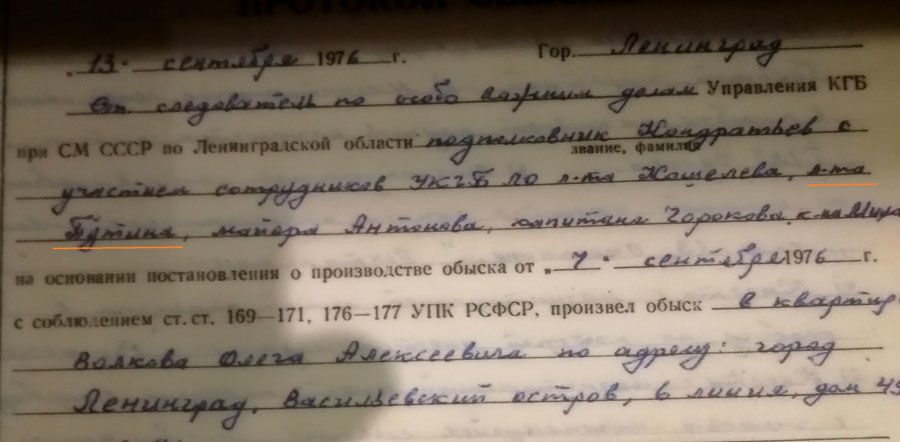 ПРОТОКОЛ ОБЫСКА
„13“ сентября 1976 г. Гор. Ленинград
Ст. следователь по особо важным делам Управления КГБ
при СМ СССР по Ленинградской области подполковник Кондратьев с
звание, фамилия
участием сотрудников УКГБ ЛО л-та Кошелева, л-та
Путина, майора Антонова, капитана Горохова, к-на
на основании постановления о производстве обыска от „7“ сентября 1976 г.
с соблюдением ст. ст. 169—171, 176—177 УПК РСФСР, произвел обыск в квартир
Волкова Олега Алексеевича по адресу: город
Ленинград, Васильевский остров, 8 линия, дом 45